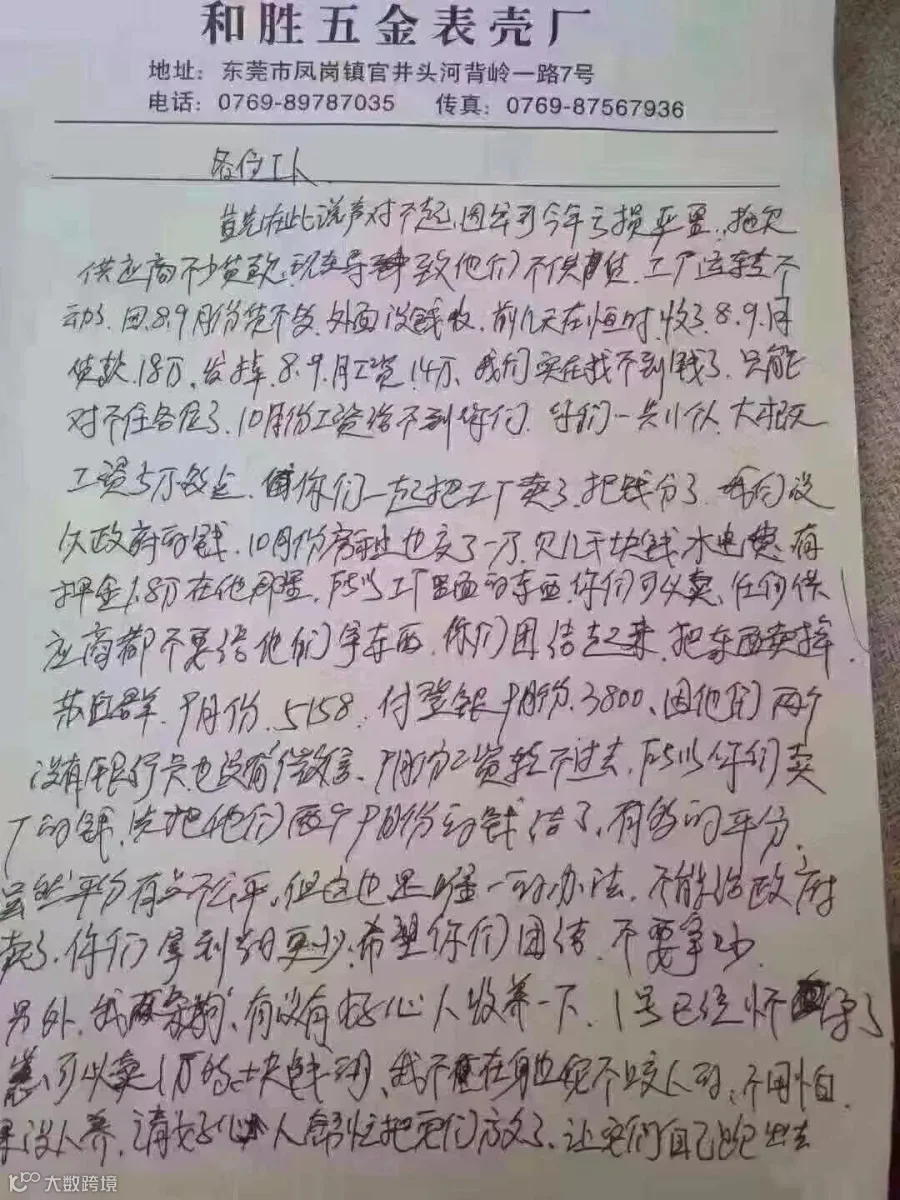 和胜五金表壳厂
地址：东莞市凤岗镇官井头河背岭一路7号
电话：0769-89787035 传真：0769-87567936
各位工人
首先在此说声对不起,因公司今年亏损严重,拖欠
供应商不少货款,现在导致他们不供货,工厂运转不
动了,因8.9月份货不多,外面没钱收,前几天在恒时收了8.9.月
货款.18万,发掉8.9.月工资.14万,我们实在找不到钱了,只能
对不住各位了,10月份工资给不到你们,你们一共11个人,大概
工资5万多点,你们一起把工厂卖了,把钱分了,我们没
欠政府的钱,10月份房租也交了一万,欠几千块钱,水电费,有
押金1.8万在他那里,所以工厂里面的东西,你们可以卖,任何供
应商都不要给他们拿东西,你们团结起来,把东西卖掉.
苏 群,9月份.5158,付登银9月份.3800、因他们两个
没有银行卡也没有微信,9月份工资转不过去,所以你们卖
厂的钱,先把他们两个9月份的钱结了,有多的平分,
虽然平分有点不公平,但这也是唯一的办法,不能给政府
卖了,你们拿到的更少,希望你们团结,不要争吵.
另外,我 条狗,有没有好心人收养一下,1号已经怀孕了
可以卖1万 块钱的,我不在身边 不咬人的,不用怕.
果没人养,请好心人帮忙把它们放了,让它们自己跑出去
大数跨境